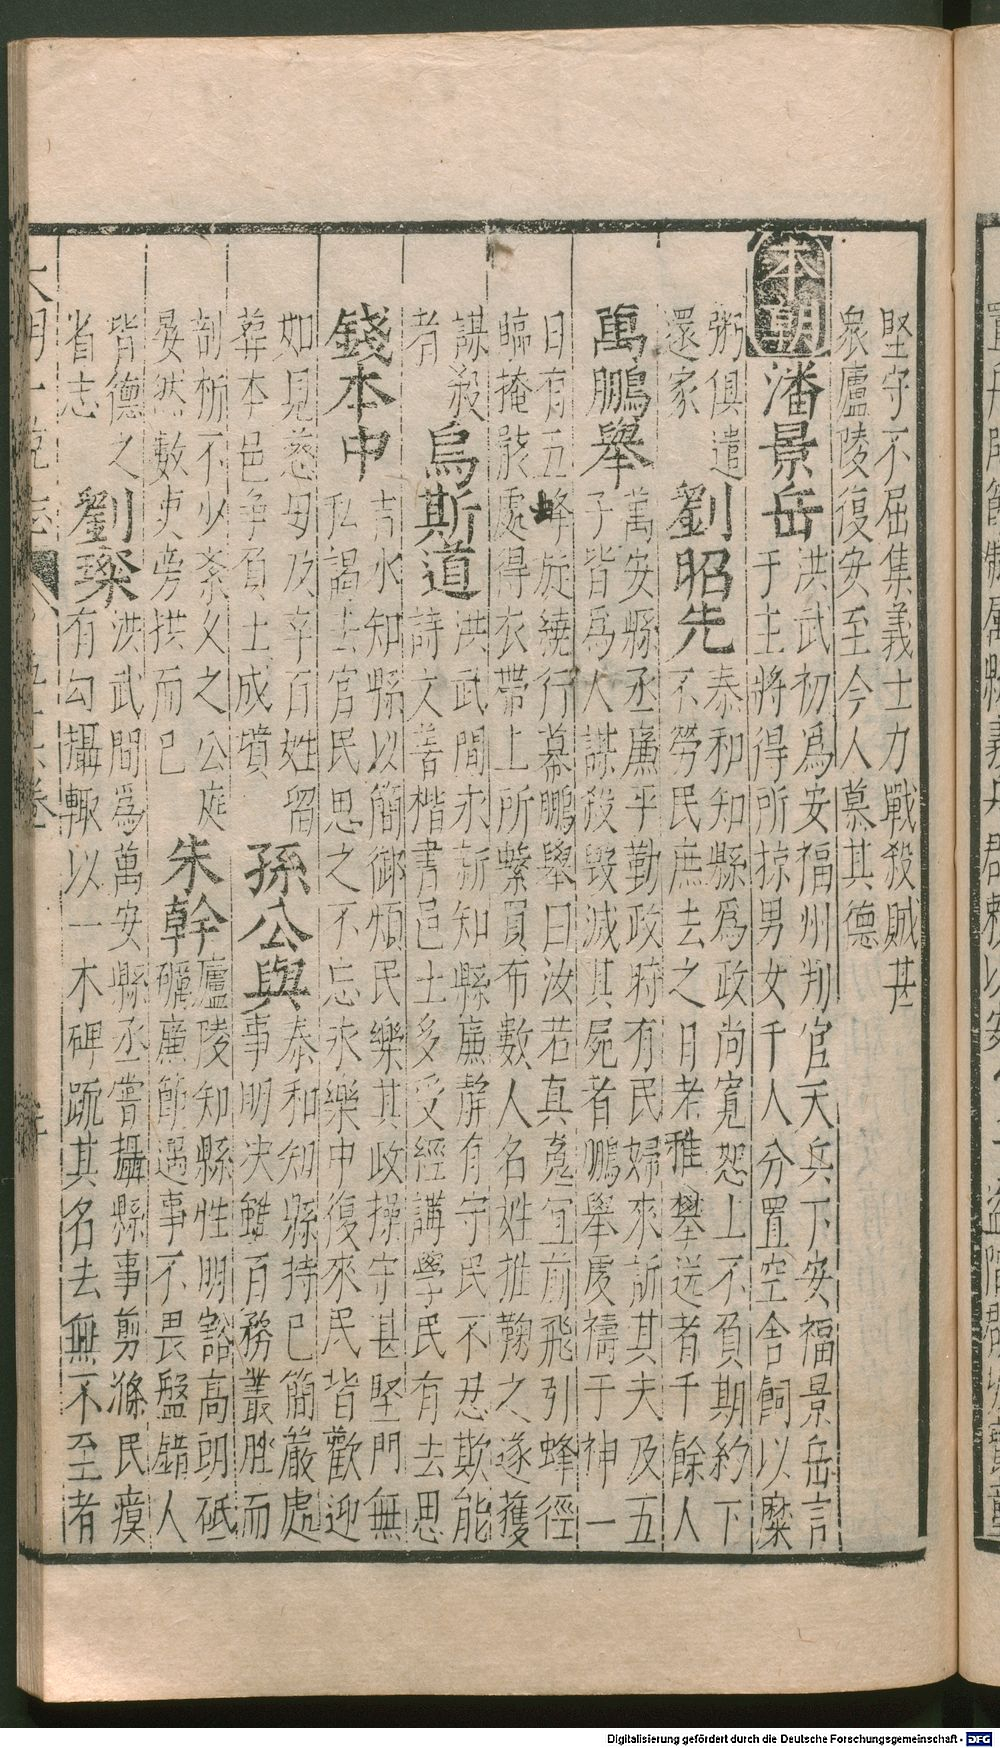 堅守不屈集義士力戰殺賊甚
衆廬陵復安至今人慕其德
本朝
潘景岳
洪武初爲安福州判官天兵下安福景岳言
于主將得所掠男女千人分置空舍飼以糜
粥俱遣
還家
劉昭先
泰和知縣爲政尚寬恕上不負期約下
不勞民庶去之日老稚攀送者千餘人
萬鵬舉
萬安縣丞廉平勤政時有民婦來訴其夫及五
子皆爲人謀殺毀滅其屍者鵬舉虔禱于神一
日有五蜂旋繞行幕鵬舉曰汝若真寃宜前飛引蜂徑
臨掩骸處得衣帶上所繫買布數人名姓推鞫之遂獲
謀殺
者
烏斯道
洪武間永新知縣廉靜有守民不忍欺能
詩文善楷書邑士多受經講學民有去思
錢本中
吉水知縣以簡御煩民樂其政操守甚堅門無
私謁去官民思之不忘永樂中復來民皆歡迎
如見慈母及卒百姓留
葬本邑爭負土成墳
孫公與
泰和知縣持已簡嚴處
事明决雖百務叢脞而
剖析不少紊义之公庭
晏然數吏旁拱而已
朱幹
廬陵知縣性明豁高朗砥
礪廉節遇事不畏盤錯人
皆德之
劉璨
洪武間爲萬安縣丞嘗攝縣事剪滌民瘼
省志
有勾攝輙以一木碑䟽其名去無不至者
大明一統志
五十六卷
Digitalisierung gefördert durch die Deutsche Forschungsgemeinschaft - DFG